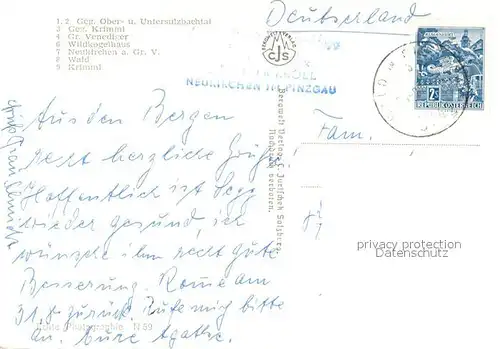 1, 2 Geg. Ober- u. Untersulzbachtal
3 Geg. Krimml
4 Gr. Venediger
6 Wildkogelhaus
7 Neukirchen a. Gr. V.
8 Wald
9 Krimml
Deutschland
CJS
NEUKIRCHEN IM PINZGAU
2 S
REPUBLIK ÖSTERREICH
Fam.
Aus den Bergen
recht herzliche Grüße!
Hoffentlich ist
wieder gesund, ich
wünsche ihm recht gute
Besserung. Komme am
31.8 zurück. Rufe mich bitte
an. Eure Agathe.
Echte Photographie N 59
Jurischek Salzburg
Nachdruck verboten.
privacy protection
Datenschutz